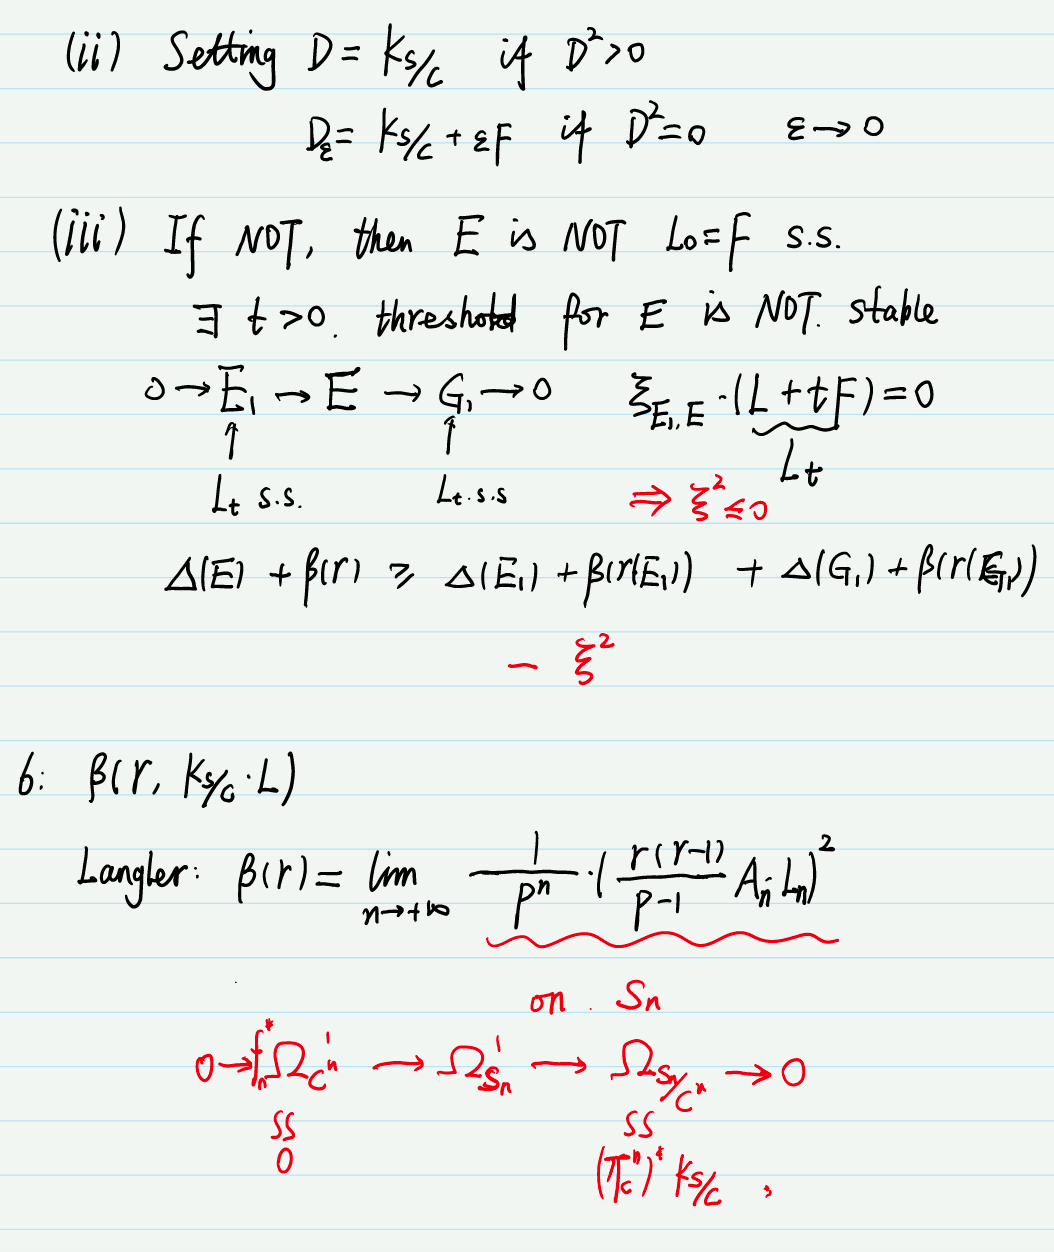 (ii) Setting D = K_{S/C} if D²>0
D_ε = K_{S/C} + εF if D²=0 ε→0
(iii) If NOT, then E is NOT L₀=F s.s.
∃ t>0. threshold for E is NOT. stable
0→E₁→E→G₁→0 ξ_{E₁,E}·(L+tF)=0
↑ ↑ L_t
L_t s.s. L_t.s.s ⇒ ξ²≤0
Δ(E)+β(r) ≥ Δ(E₁)+β(r(E₁)) + Δ(G₁)+β(r(G₁))
− ξ²
6: β(r, K_{S/C}·L)
Langler: β(r) = lim_{n→+∞} 1/pⁿ·(r(r-1)/(p-1) A_n L_n)²
on. S_n
0→f_n^*Ω^1_{C^n}→Ω^1_{S_n}→Ω_{S_n/C^n}→0
SS SS
0 (π_C^n)^* K_{S/C},